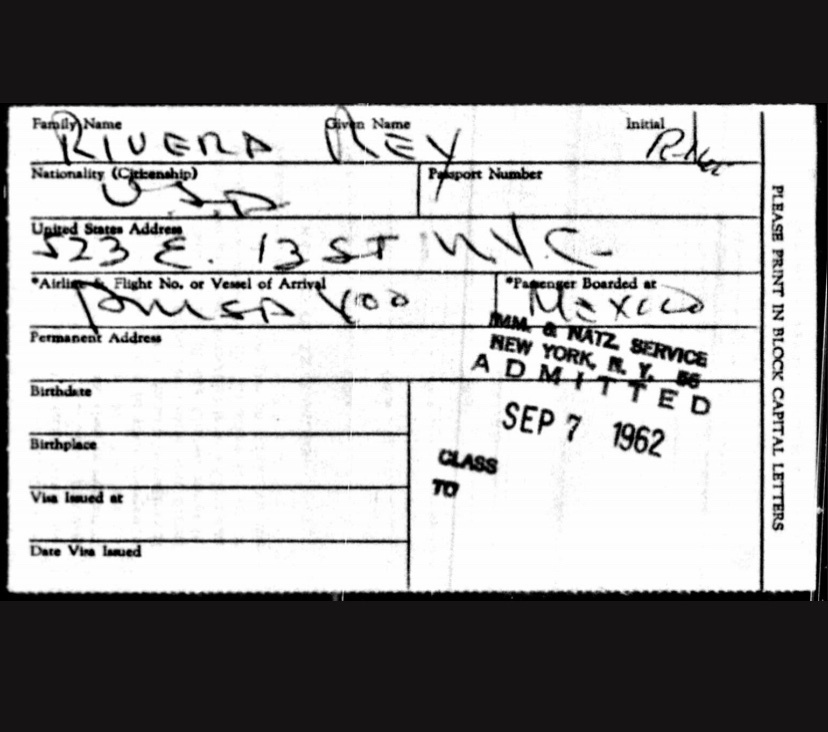 Family Name Given Name Initial
RIVERA REY
Nationality (Citizenship) Passport Number
U.S.A
United States Address
523 E. 13 ST N.Y.C.
*Airline & Flight No. or Vessel of Arrival *Passenger Boarded at
MEXICO
Permanent Address
IMM. & NATZ. SERVICE
NEW YORK, N. Y. 56
ADMITTED
SEP 7 1962
CLASS
TO
Birthdate
Birthplace
Visa Issued at
Date Visa Issued
PLEASE PRINT IN BLOCK CAPITAL LETTERS